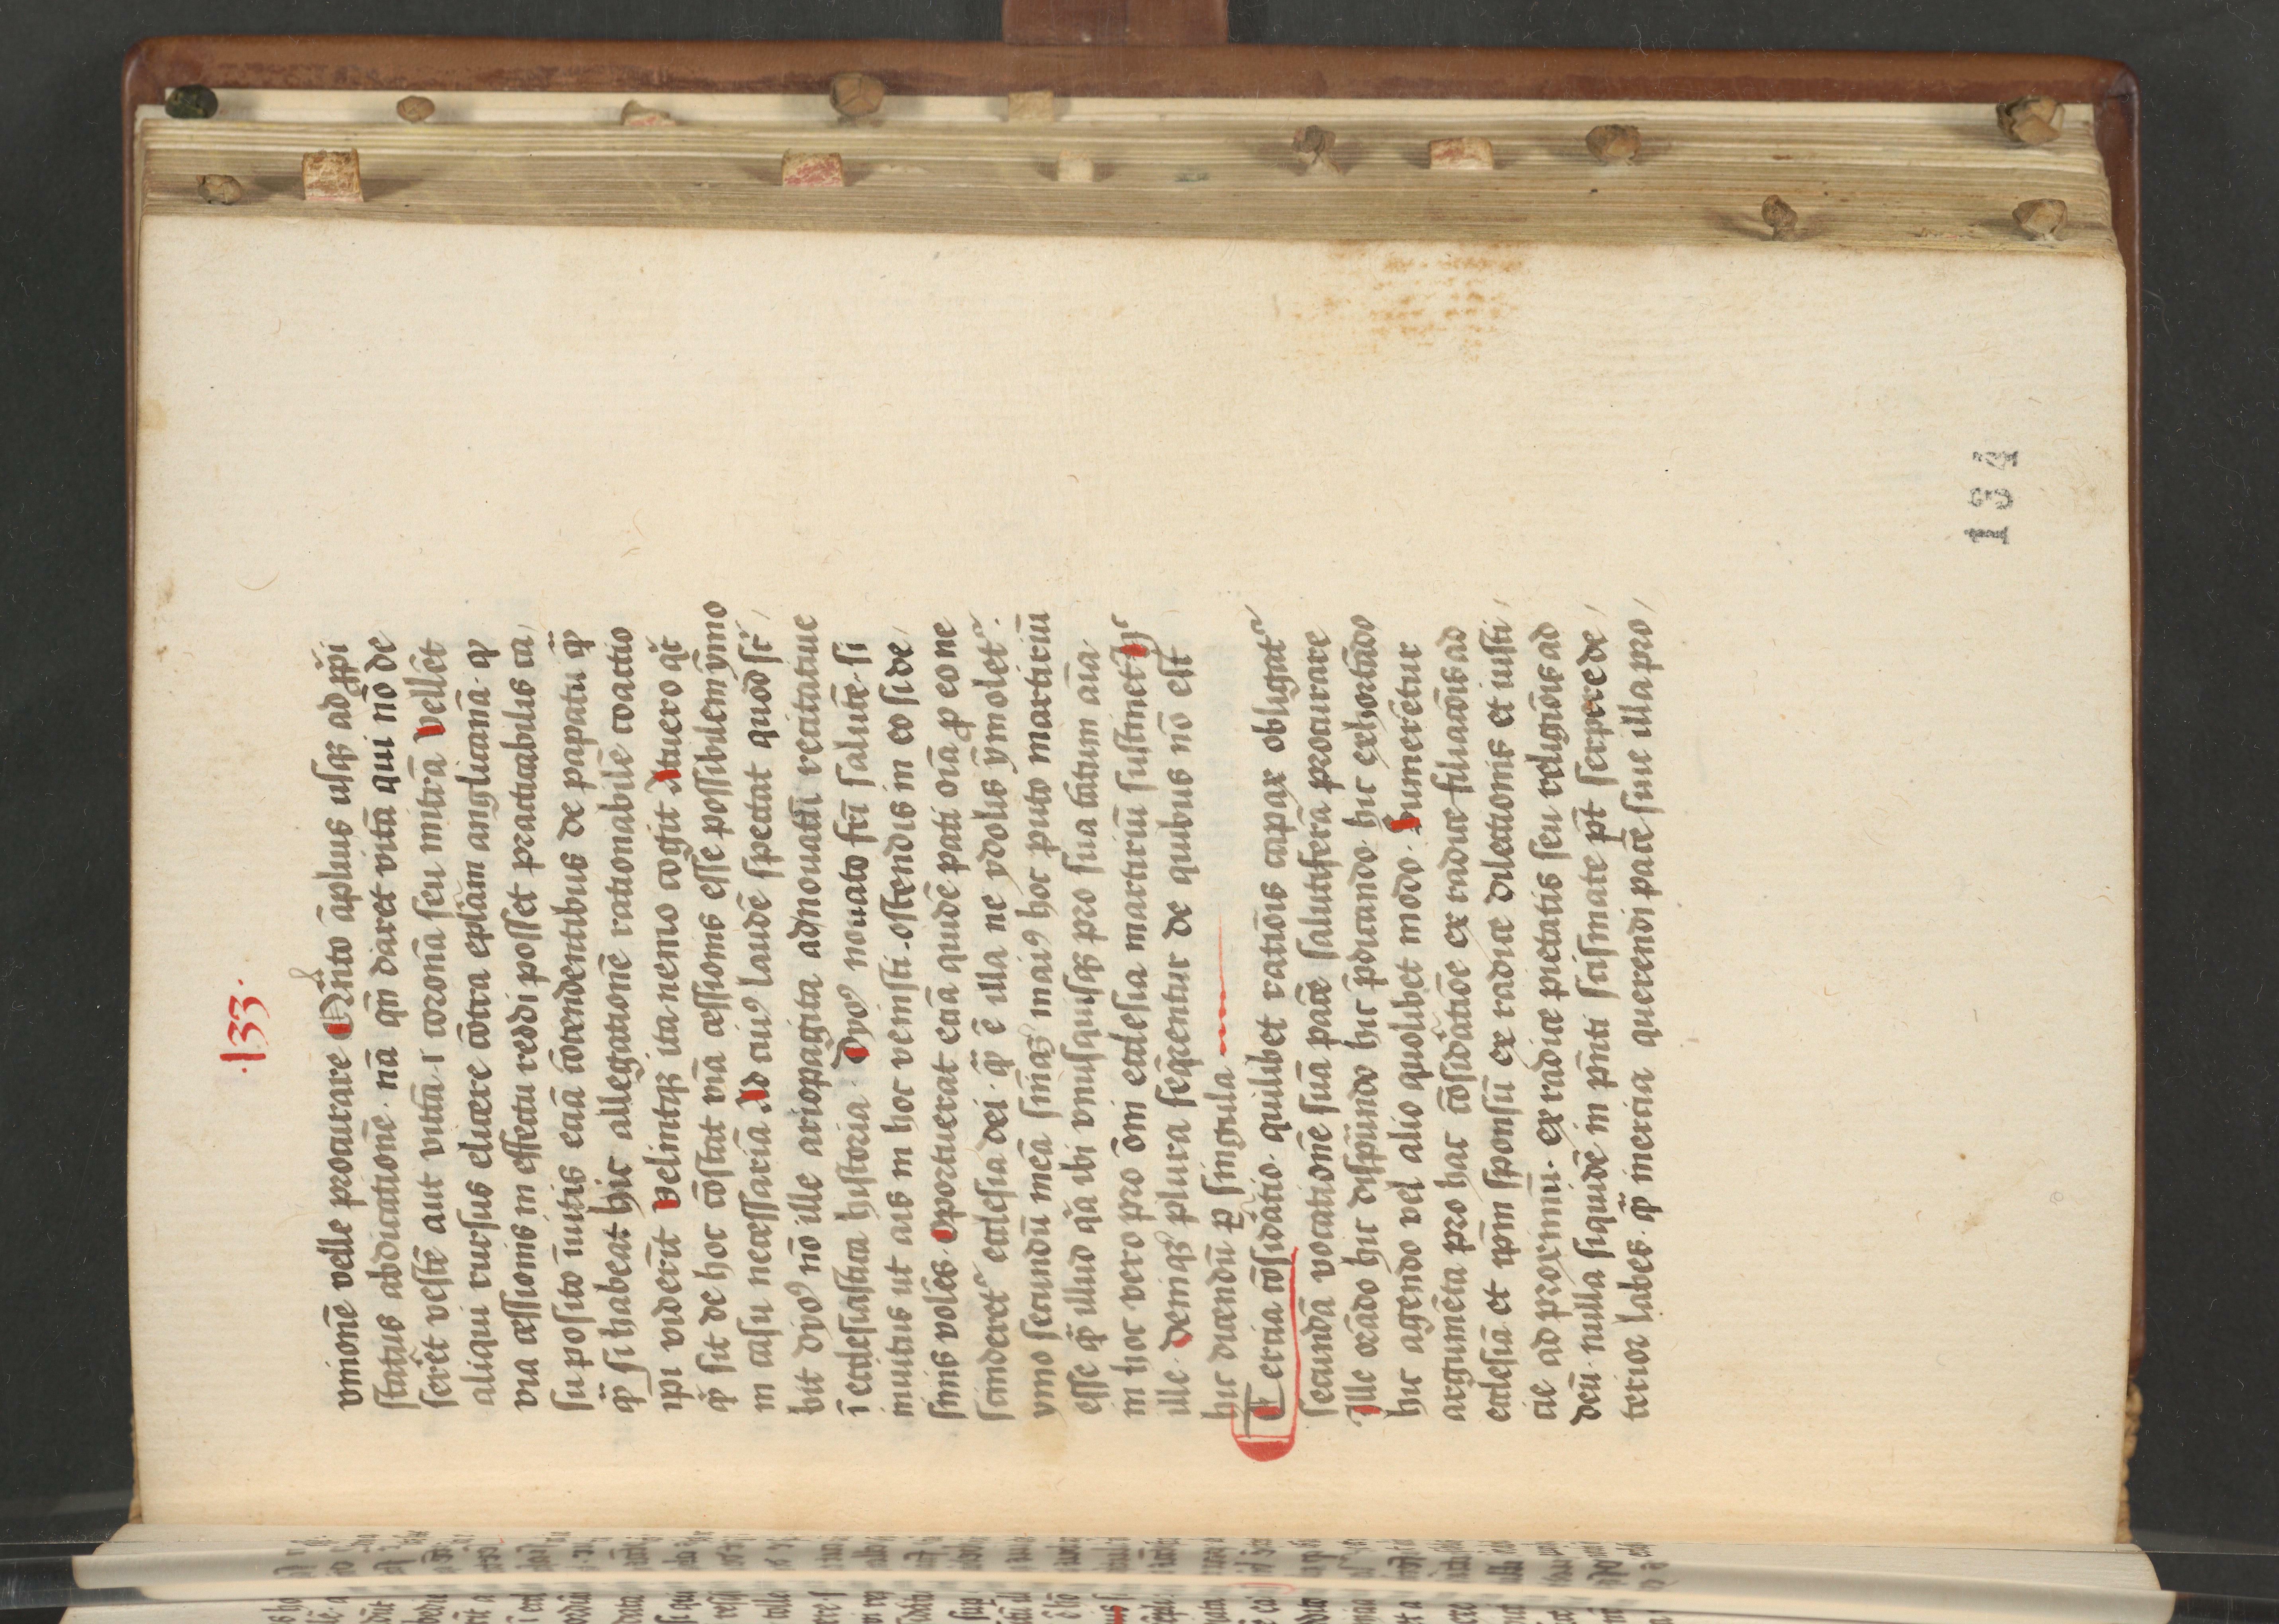 ·133·
vnionē velle procurare Qr̄nto āplius usqꝫ ad ꝓpi
status abdicationē· nā qm̄ diaret vitā qui nō de
ferr̄et vestē aut vittā· ı coronā seu mitrā vellēt
aliqui rursus elicere cōtra eplām anglicanā· ꝙ
via cessionis in effectu reddi posset practicabilis ca/
su posito m̄utis eciā cōtendentibus de papatu q̄
ꝙ si habeat hijc allegationē rationabilē coactio
ipi viderīt velintqꝫ ita nemo cogit Atuero qꝛ̄
ꝙ sit de hoc cōstat viā cessionis esse possibilem ȳmo
in casu necessariā Ad cuiꝰ laudē spectat quod scͬ/
bit dyoꝰ nō ille ariopagita ad nouatū recitatiue
ī ecclesiastica historia· Dyoꝰ nouato frī salutē· si
inuitus ut ais in hoc venisti· ostendis in eo si de/
sinis volēs· Oportuerat eciā quidē pati oīa ꝓ eo ne
scinderetͬ ecclesia dei· q̄ ē illa ne ydolis ȳmoletͬ·
ymo secundū meā sm̄aꝫ maiꝰ hoc puto martiriū
esse ꝙ illud qͣ ibi vnusquisqꝫ pro sua tātum aīa·
in hoc vero pro ōni ecclesia martiriū sustinet hͨ
ille· Deniqꝫ plura seqͬentur de quibus nō est
hic dicendū ꝑ singula
Tercia cōsidātio· quilibet ratiōis capax obligatͬ
secundā vocationē suā pacē salutiferā procurare
Ille orādo hic disputando hic p̄dicando· hic exhortādo
hic agendo vel alio quolibet modo· Sumerētur
argumēta pro hac cōsidātiōe ex radice filiacōis ad
ecclesiā et xp̄m sponsū ex radice dilectionis et iusti/
cie ad proximū· ex radice pietatis seu religiōis ad
deū· nulla siquidē in p̄nti scismate pt̄ serpere de/
terior labes· ꝙ inercia querendi pacē siue illa pro/
134